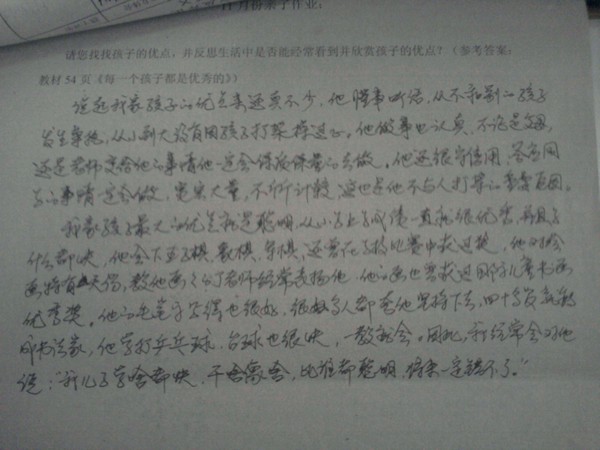 月份亲子作业:
请您找找孩子的优点，并反思生活中是否能经常看到并欣赏孩子的优点？(参考答案:
教材 54 页《每一个孩子都是优秀的》)
说起我家孩子的优点真还真不少，他懂事听话，从不和别的孩子
发生争执，从小到大没有因孩子打架操过心。他做事也认真，不论是父母
还是老师交给他的事情他一定会保质保量的去做。他还很守信用，答应同
的事情一定会做，宽宏大量，不斤斤计较，这也是他不与人打架的重要原因。
我家孩子最大的优点就是聪明，从小学上成绩一直都很优秀，学
什么都快，他会下五子棋、象棋、军棋，还曾在比赛中获过奖，他的绘
画特有天份，教他画的老师经常表扬他，他的画也曾获过儿童书画
优秀奖。他的毛笔字写得也很好，很多人都要他坚持下去，四十岁后就能
成书法家，他学打乒乓球、台球也很快，一教就会。因此，我经常会对他
说：“我儿子学啥都快，干啥像啥，比谁都聪明，将来一定错不了。”